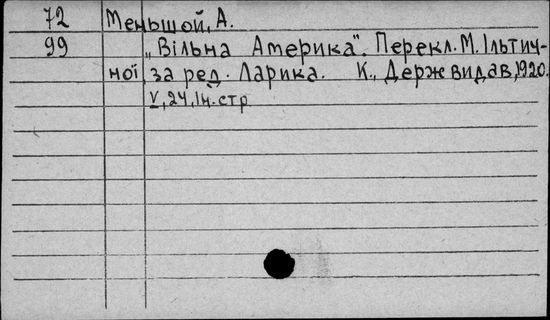 72 Меньшой, А.
99 „Вільна Америка". Перекл. М. Ільтич-
ної за ред. Ларика. К., Держвидав, 1920.
V, 24, Iн. стр